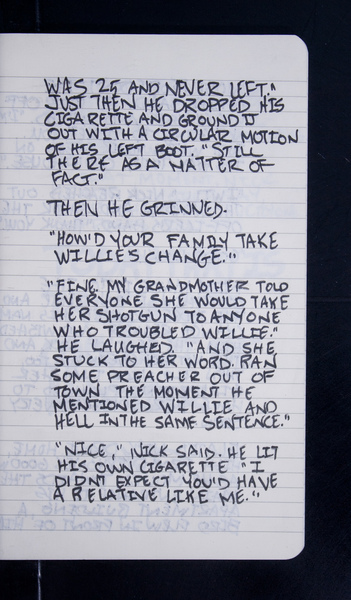 WAS 25 AND NEVER LEFT."
JUST THEN HE DROPPED HIS
CIGARETTE AND GROUND IT
OUT WITH A CIRCULAR MOTION
OF HIS LEFT BOOT. "STILL
THERE AS A MATTER OF
FACT."
THEN HE GRINNED.
"HOW'D YOUR FAMILY TAKE
WILLIE'S CHANGE."
"FINE. MY GRANDMOTHER TOLD
EVERYONE SHE WOULD TAKE
HER SHOTGUN TO ANYONE
WHO TROUBLED WILLIE."
HE LAUGHED "AND SHE
STUCK TO HER WORD. RAN
SOME PREACHER OUT OF
TOWN THE MOMENT HE
MENTIONED WILLIE AND
HELL IN THE SAME SENTENCE."
"NICE," NICK SAID. HE LIT
HIS OWN CIGARETTE "I
DIDN'T EXPECT YOU'D HAVE
A RELATIVE LIKE ME."